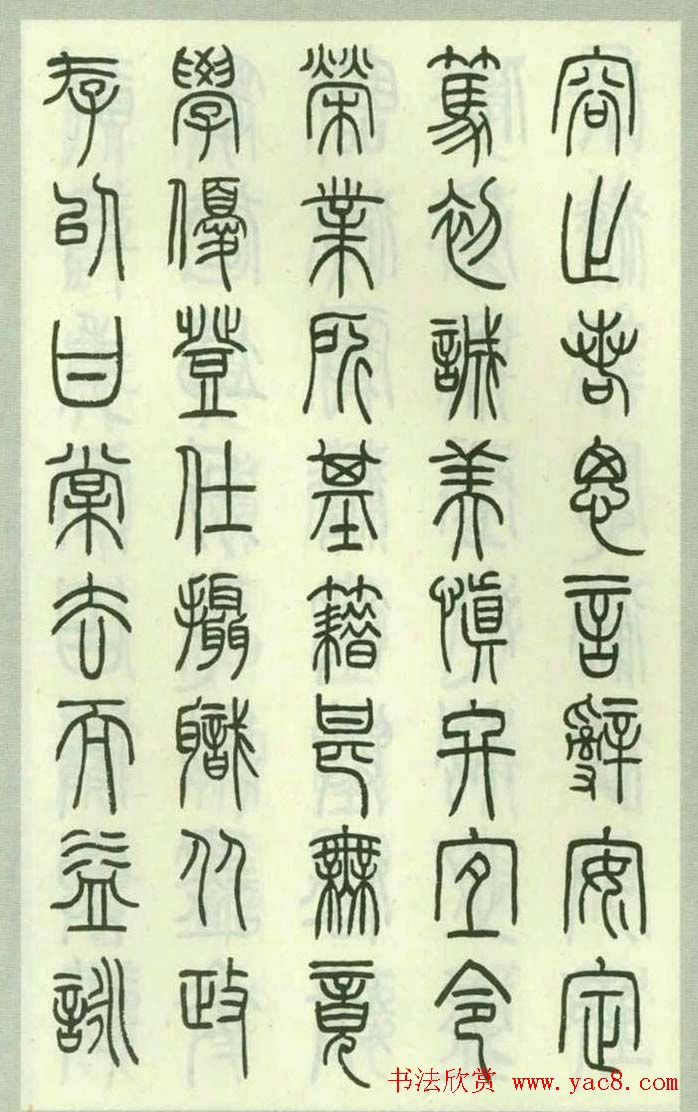 容止若思言辭安定
篤初誠美慎終宜令
榮業所基籍甚無竟
學優登仕攝職从政
存以甘棠去而益詠
书法欣赏 www.yac8.com